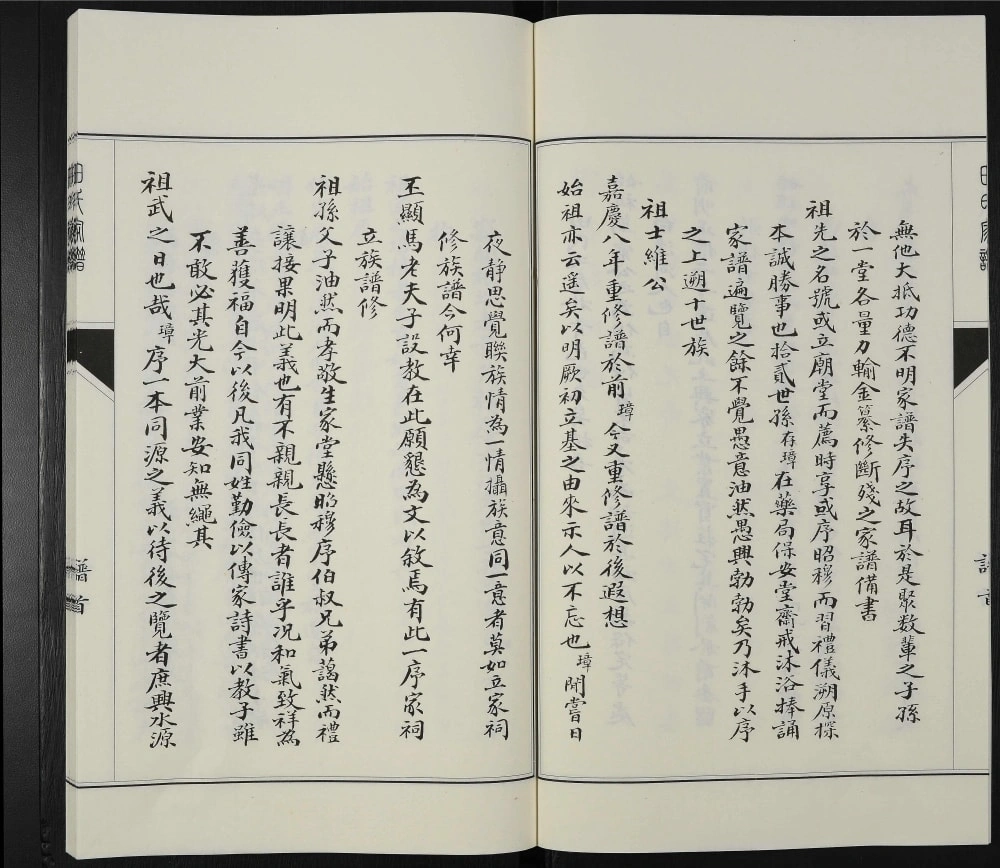 無他大抵功德不明家譜失序之故耳於是聚数輩之子孫
於一堂各量力輸金纂修斷残之家譜備書
祖先之名號或立廟堂而薦時享或序昭穆而習禮儀溯原探
本誠勝事也拾貳世孫存璋在藥局保安堂齋戒沐浴捧誦
家譜遍覽之餘不覺愚意油然愚興勃勃矣乃沐手以序
之上遡十世族
祖士維公
嘉慶八年重修譜於前璋今又重修譜於後遐想
始祖亦云遥矣以明厥初立基之由來示人以不忘也璋聞嘗日
夜静思覺聯族情為一情攝族意同一意者莫如立家祠
修族譜今何幸
丕顯馬老夫子設教在此願懇為文以敘焉有此一序家祠
立族譜修
祖孫父子油然而孝敬生家堂懸昭穆序伯叔兄弟藹然而禮
讓接果明此義也有不親親長長者誰乎况和氣致祥為
善獲福自今以後凡我同姓勤儉以傳家詩書以教子雖
不敢必其光大前業安知無繩其
祖武之日也哉璋序一本同源之義以待後之覽者庶興水源
譜首